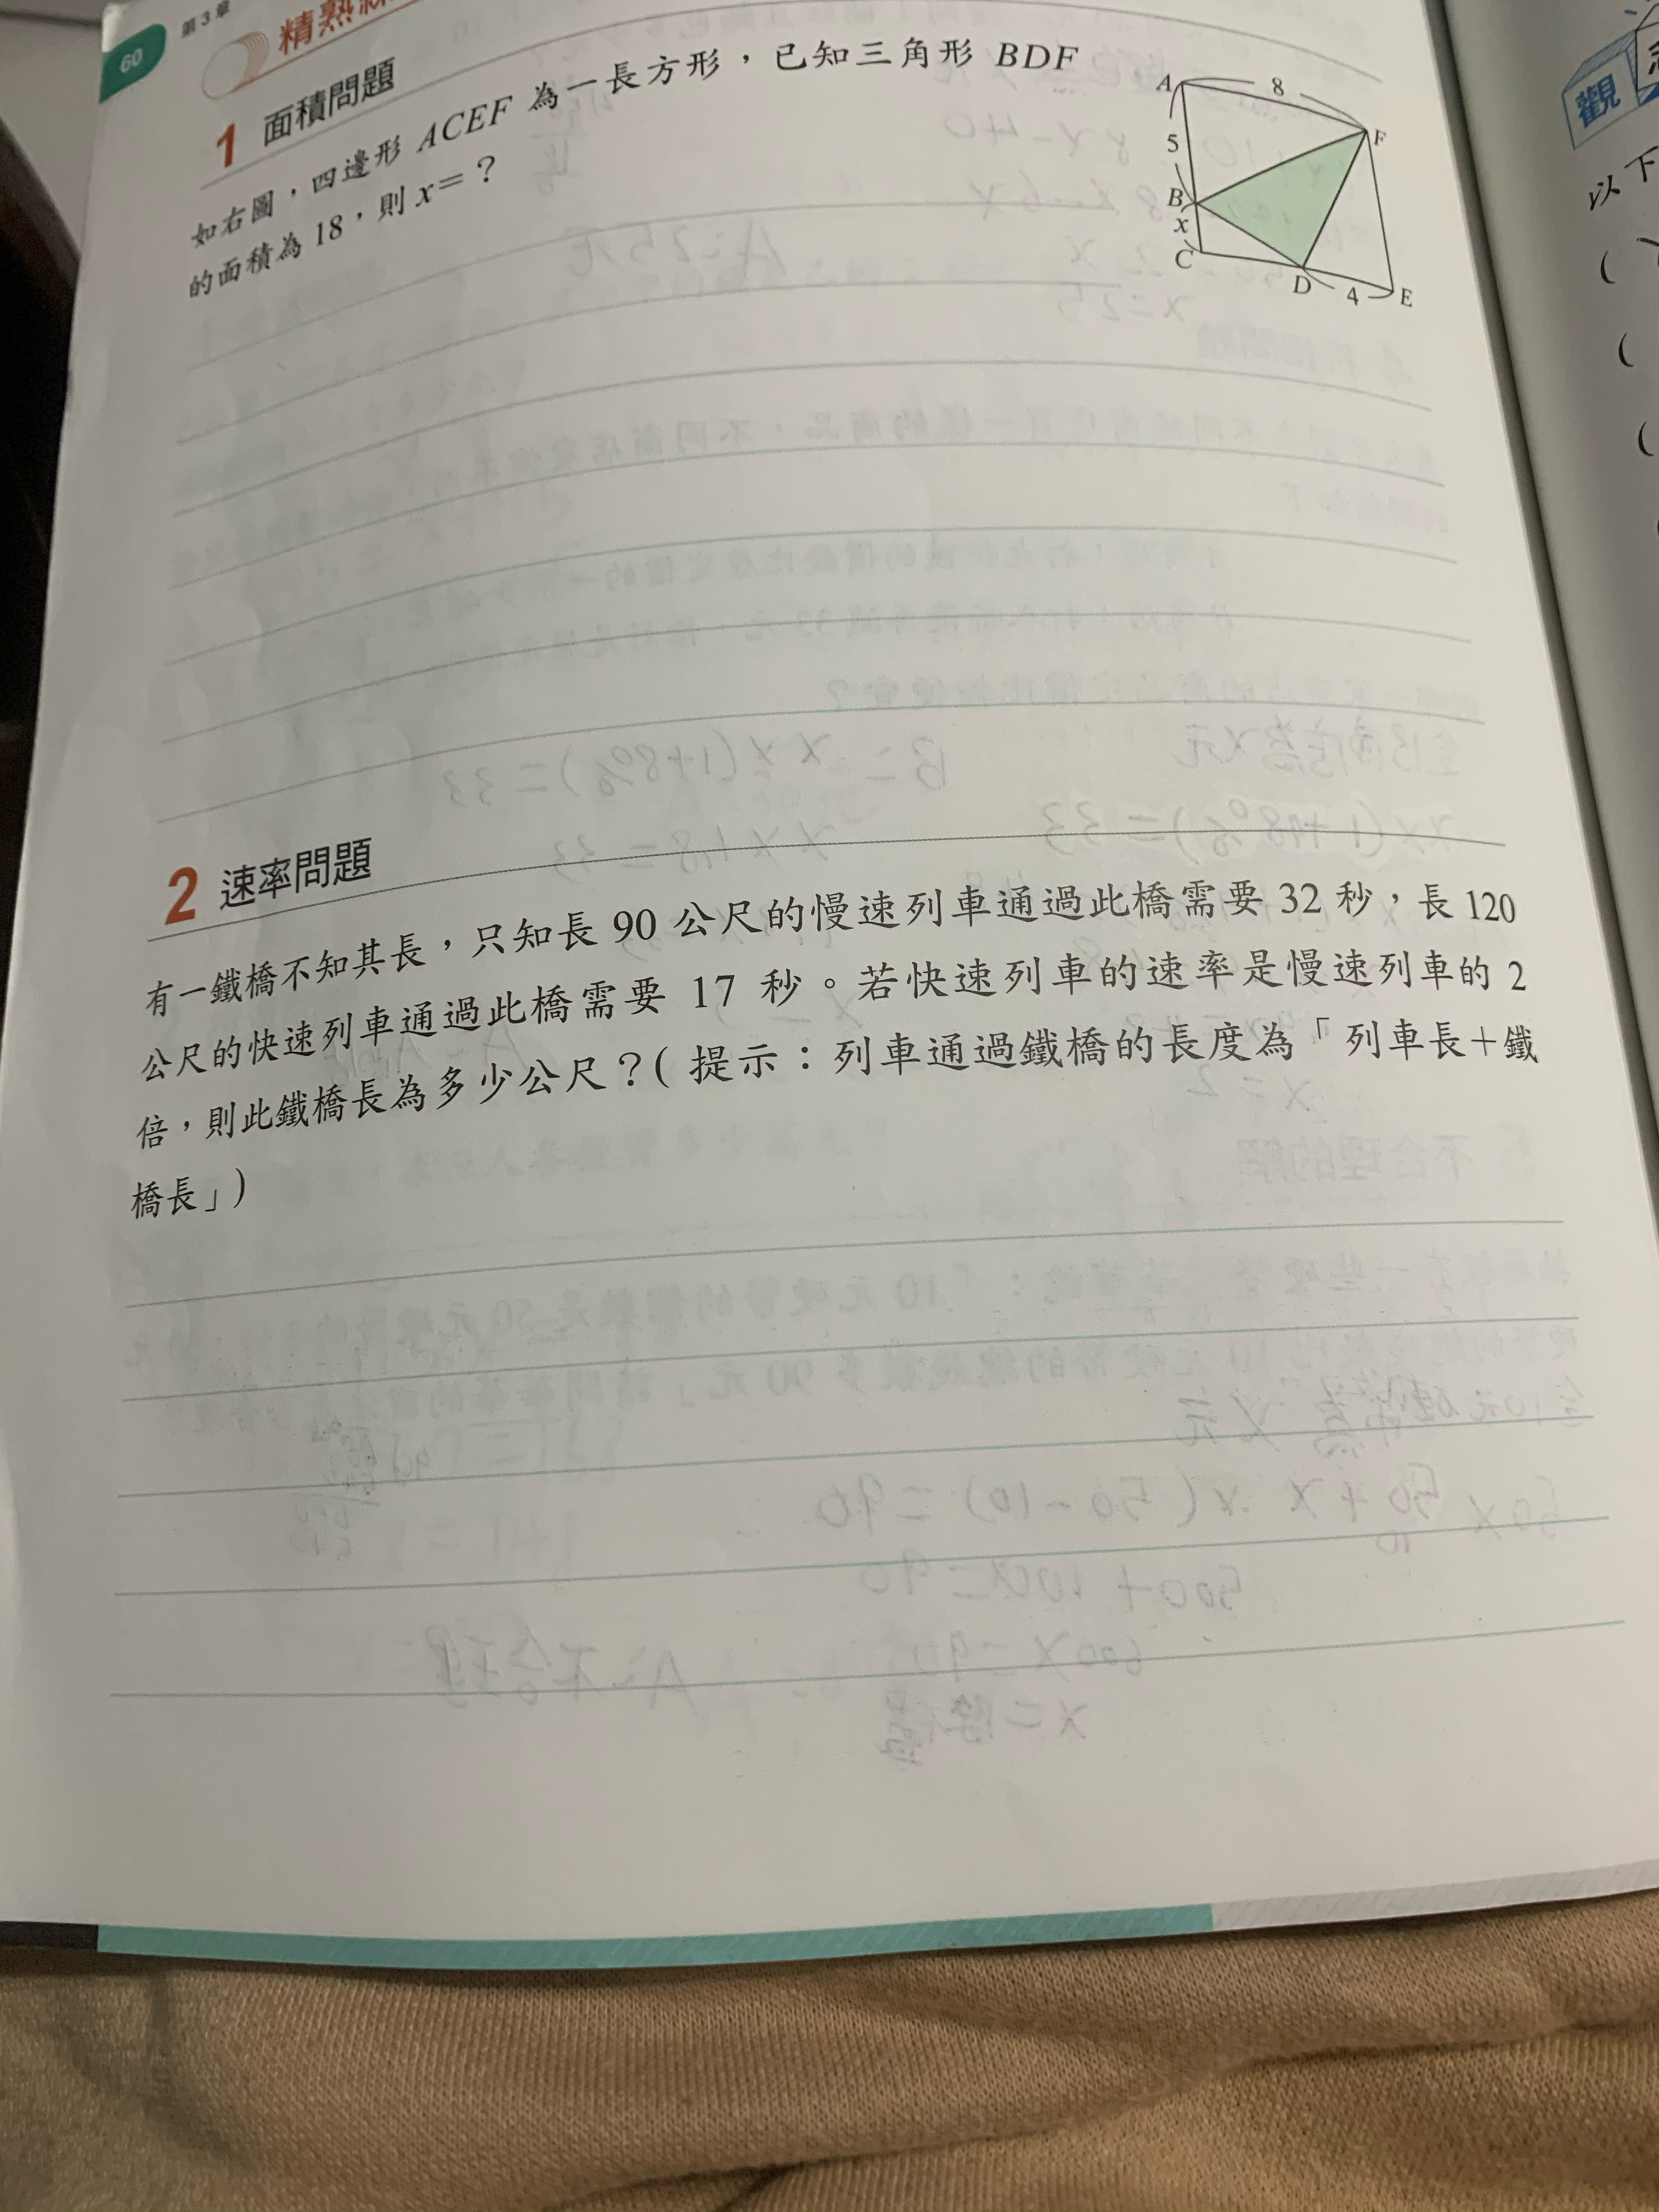 60
第3章
精熟
1 面積問題
如右圖，四邊形 ACEF 為一長方形，已知三角形 BDF
的面積為 18，則 x＝？
A
8
F
5
B
x
C
D
4
E
2 速率問題
有一鐵橋不知其長，只知長 90 公尺的慢速列車通過此橋需要 32 秒，長 120
公尺的快速列車通過此橋需要 17 秒。若快速列車的速率是慢速列車的 2
倍，則此鐵橋長為多少公尺？( 提示：列車通過鐵橋的長度為「列車長＋鐵
橋長」)
觀
以下
(
(
(